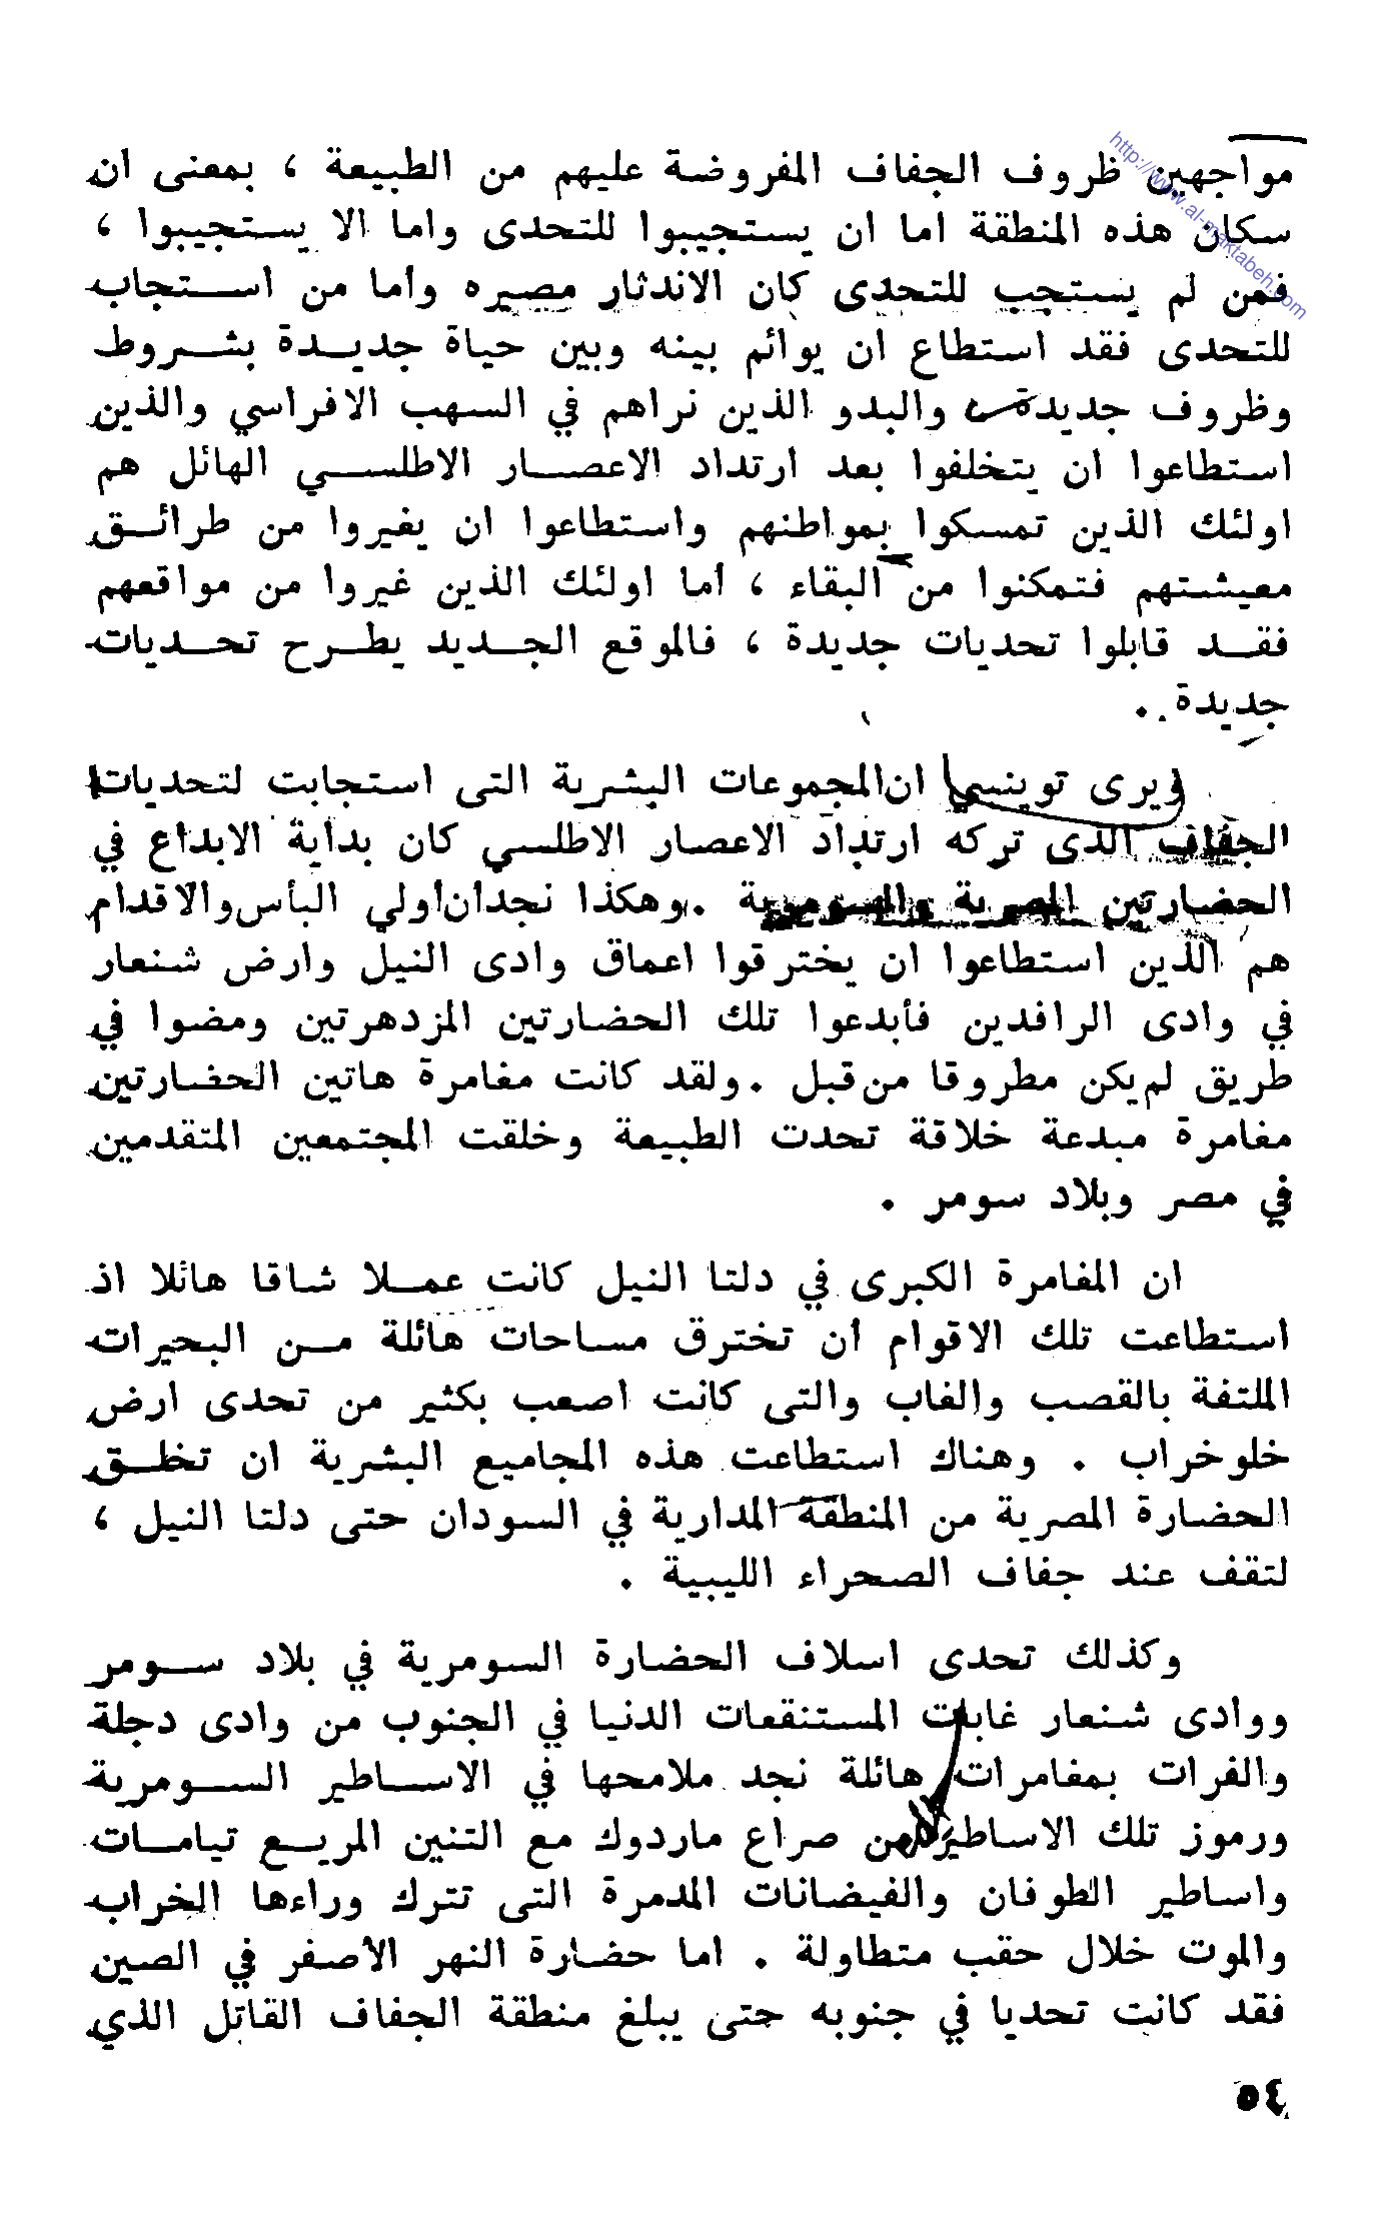 http://www.al-maktabeh.com
مواجهين ظروف الجفاف المفروضة عليهم من الطبيعة ، بمعنى ان
سكان هذه المنطقة اما ان يستجيبوا للتحدى واما الا يستجيبوا ،
فمن لم يستجب للتحدى كان الاندثار مصيره وأما من استجاب
للتحدى فقد استطاع ان يوائم بينه وبين حياة جديدة بشروط
وظروف جديدة والبدو الذين نراهم في السهب الافراسي والذين
استطاعوا ان يتخلفوا بعد ارتداد الاعصار الاطلسي الهائل هم
اولئك الذين تمسكوا بمواطنهم واستطاعوا ان يغيروا من طرائق
معيشتهم فتمكنوا من البقاء ، أما اولئك الذين غيروا من مواقعهم
فقد قابلوا تحديات جديدة ، فالموقع الجديد يطرح تحديات
جديدة .
ويرى توينبسي ان المجموعات البشرية التى استجابت لتحديات
الجفاف الذى تركه ارتداد الاعصار الاطلسي كان بداية الابداع في
الحضارتين المصرية والسومرية . وهكذا نجد ان أولي البأس والاقدام
هم الذين استطاعوا ان يخترقوا اعماق وادى النيل وارض شنعار
في وادى الرافدين فأبدعوا تلك الحضارتين المزدهرتين ومضوا في
طريق لم يكن مطروقا من قبل . ولقد كانت مغامرة هاتين الحضارتين
مغامرة مبدعة خلاقة تحدت الطبيعة وخلقت المجتمعين المتقدمين
في مصر وبلاد سومر .
ان المغامرة الكبرى في دلتا النيل كانت عملا شاقا هائلا اذ
استطاعت تلك الاقوام أن تخترق مساحات هائلة من البحيرات
الملتفة بالقصب والغاب والتى كانت اصعب بكثير من تحدى ارض
خلو خراب . وهناك استطاعت هذه المجاميع البشرية ان تخلق
الحضارة المصرية من المنطقة المدارية في السودان حتى دلتا النيل ،
لتقف عند جفاف الصحراء الليبية .
وكذلك تحدى اسلاف الحضارة السومرية في بلاد سومر
ووادى شنعار غابات المستنقعات الدنيا في الجنوب من وادى دجلة
والفرات بمغامرات هائلة نجد ملامحها في الاساطير السومرية
ورموز تلك الاساطير من صراع ماردوك مع التنين المريع تيامات
واساطير الطوفان والفيضانات المدمرة التى تترك وراءها الخراب
والموت خلال حقب متطاولة . اما حضارة النهر الأصفر في الصين
فقد كانت تحديا في جنوبه حتى يبلغ منطقة الجفاف القاتل الذي
٥٤